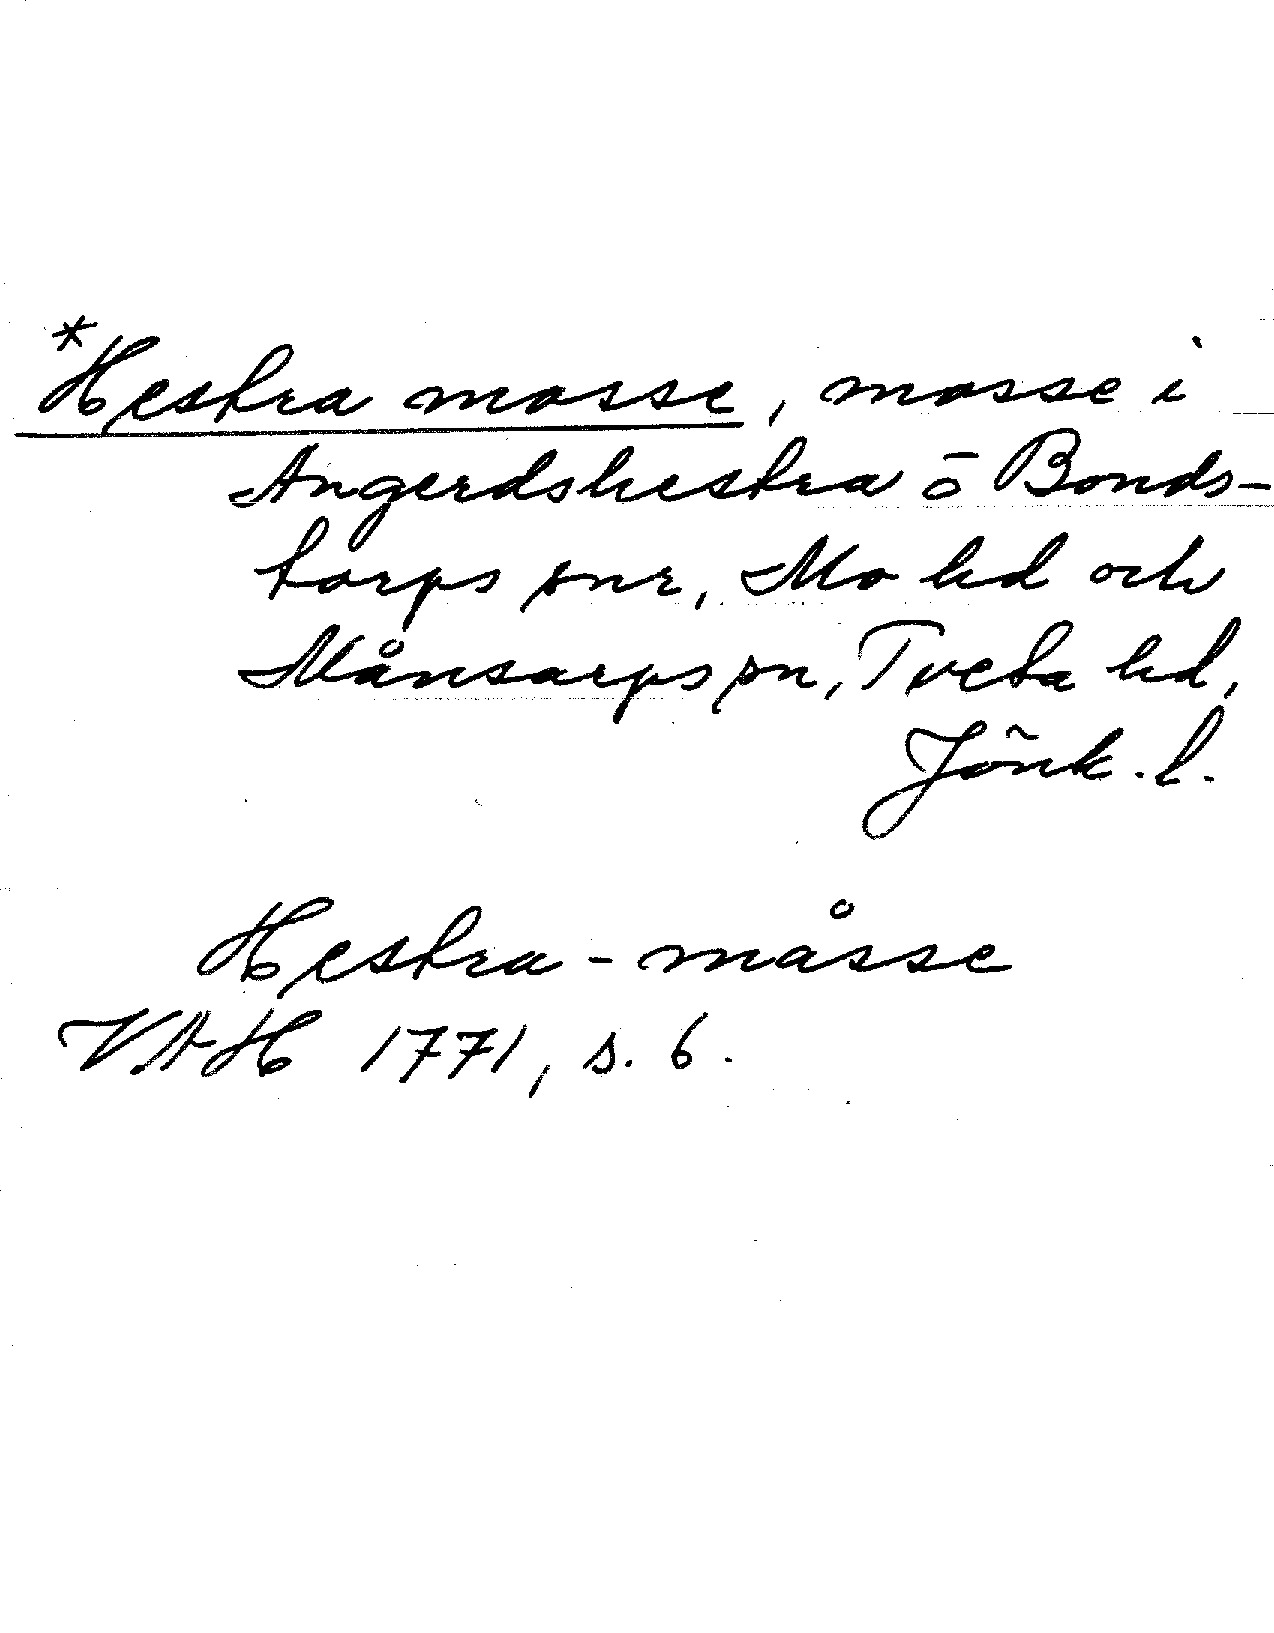 *Hestra mosse, mosse i
Angerdshestra ō Bonds-
torps snr, Mo hd och
Månsarps sn, Tveta hd,
Jönk. l.
Hestra-måsse
VAH 1771, s. 6.